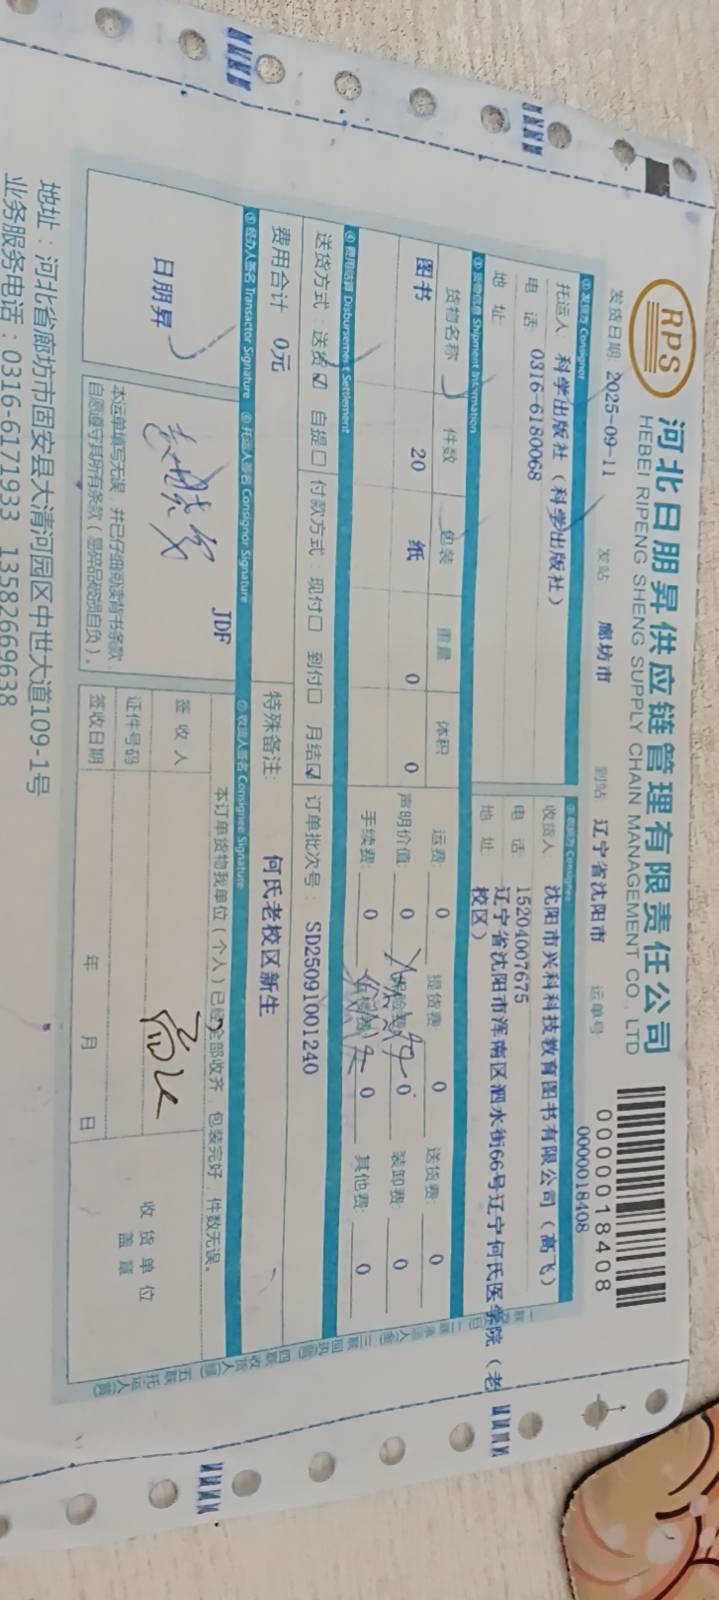 RPS
河北日朋昇供应链管理有限责任公司
HEBEI RIPENG SHENG SUPPLY CHAIN MANAGEMENT CO., LTD
0000018408
发货日期 2025-09-11 发站 廊坊市 到站 辽宁省沈阳市 运单号 0000018408
① 发货方 Consignor
托运人 科学出版社（科学出版社）
电 话 0316-6180068
地 址
② 收货方 Consignee
收货人 沈阳市兴科科技教育图书有限公司（高飞）
电 话 15204007675
地 址 辽宁省沈阳市浑南区泗水街66号辽宁何氏医学院（老
校区）
③ 货物信息 Shipment Information
货物名称 件数 包装 重量 体积
图书 20 纸 0 0
运费: 0 提货费: 0 送货费: 0
声明价值: 0 保险费: 0 装卸费: 0
手续费: 0 0 其他费: 0
④ 费用结算 Disbursement Settlement
送货方式：送货☑ 自提☐ 付款方式：现付☐ 到付☐ 月结☑ 订单批次号：SD25091001240
费用合计 0元 特殊备注: 何氏老校区新生
⑤ 经办人签名 Transactor Signature ⑥ 托运人签名 Consignor Signature ⑦ 收货人签名 Consignee Signature
日朋昇
JDF
本运单填写无误，并已仔细阅读背书条款，
自愿遵守其所有条款（易碎品破损自负）。
本订单货物我单位（个人）已经全部收齐，包装完好，件数无误。
签 收 人
证件号码
签收日期 年 月 日
收 货 单 位
盖 章
地址：河北省廊坊市固安县大清河园区中世大道109-1号
业务服务电话：0316-6171933 13582669638